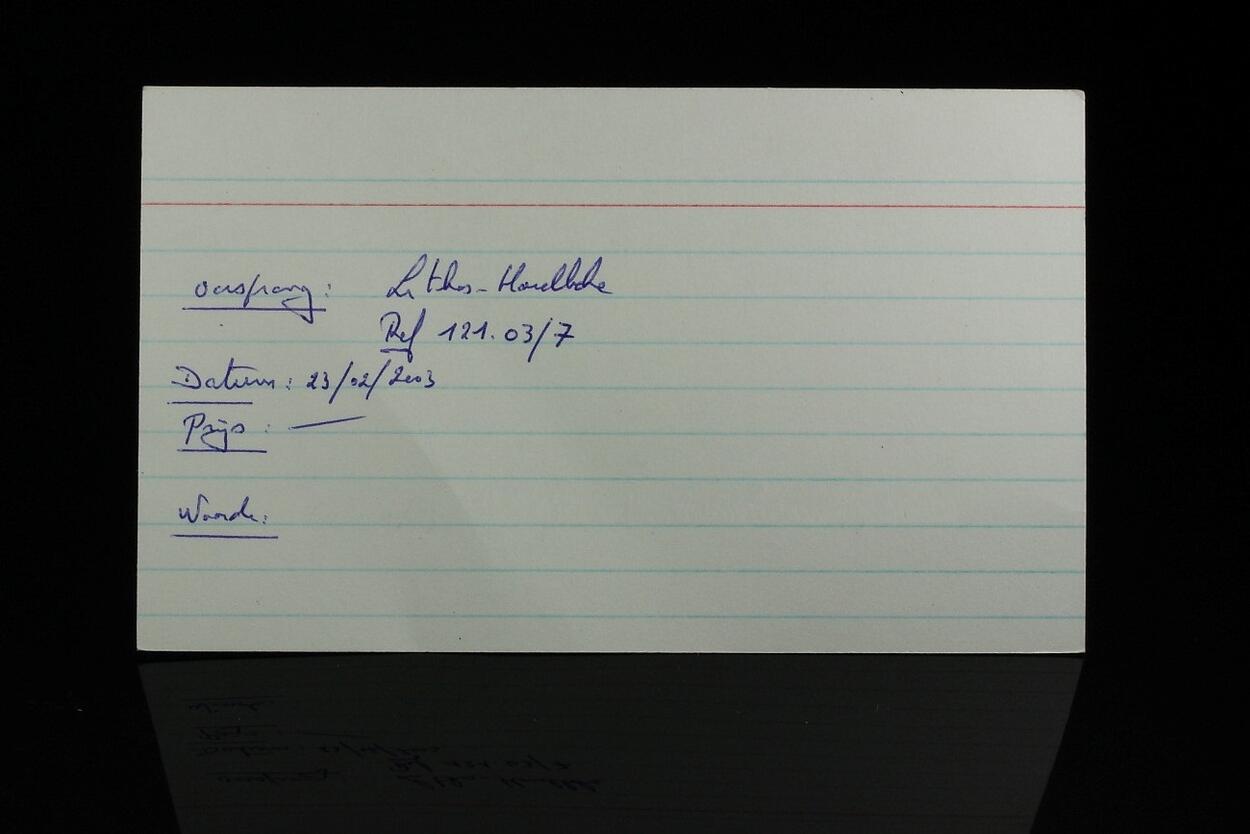 oorsprong: Lithos-Harelbeke
Ref 121.03/7
Datum: 23/02/2003
Prijs: —
Waarde: